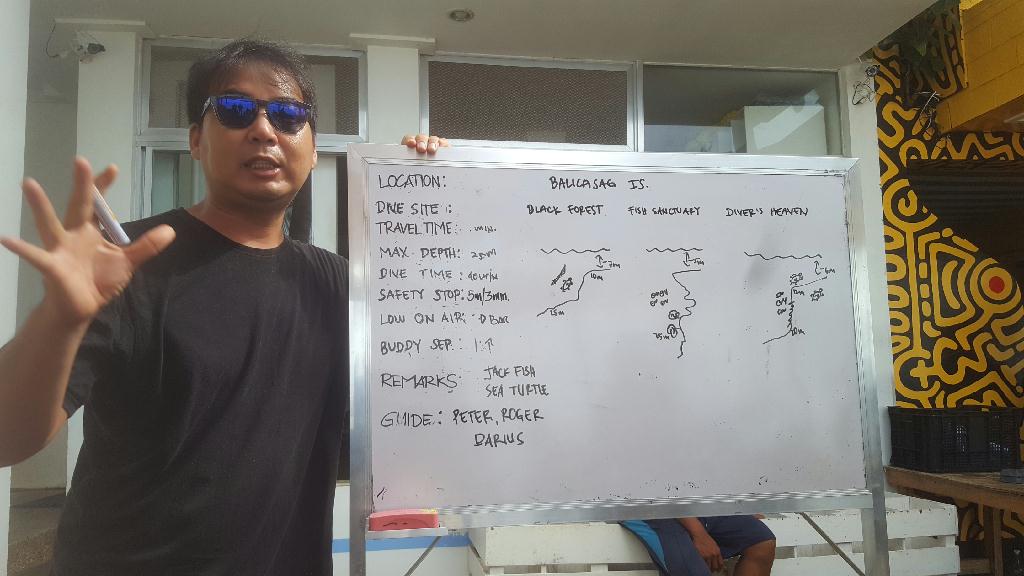 LOCATION: BALICASAG IS.
DIVE SITE : BLACK FOREST FISH SANCTUARY DIVER'S HEAVEN
TRAVEL TIME: min.
MAX. DEPTH: 25m
DIVE TIME: 40min
SAFETY STOP: 5m/3min.
LOW ON AIR:
BUDDY SEP.: 1
REMARKS JACK FISH
SEA TURTLE
GUIDE: PETER, ROGER
DARIUS
7m
10m
15m
7m
15m
5m
12m